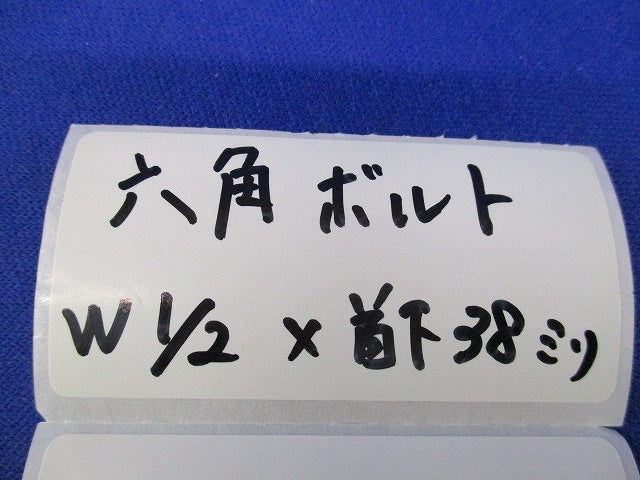 六角ボルト
W 1/2 × 首下38ミリ